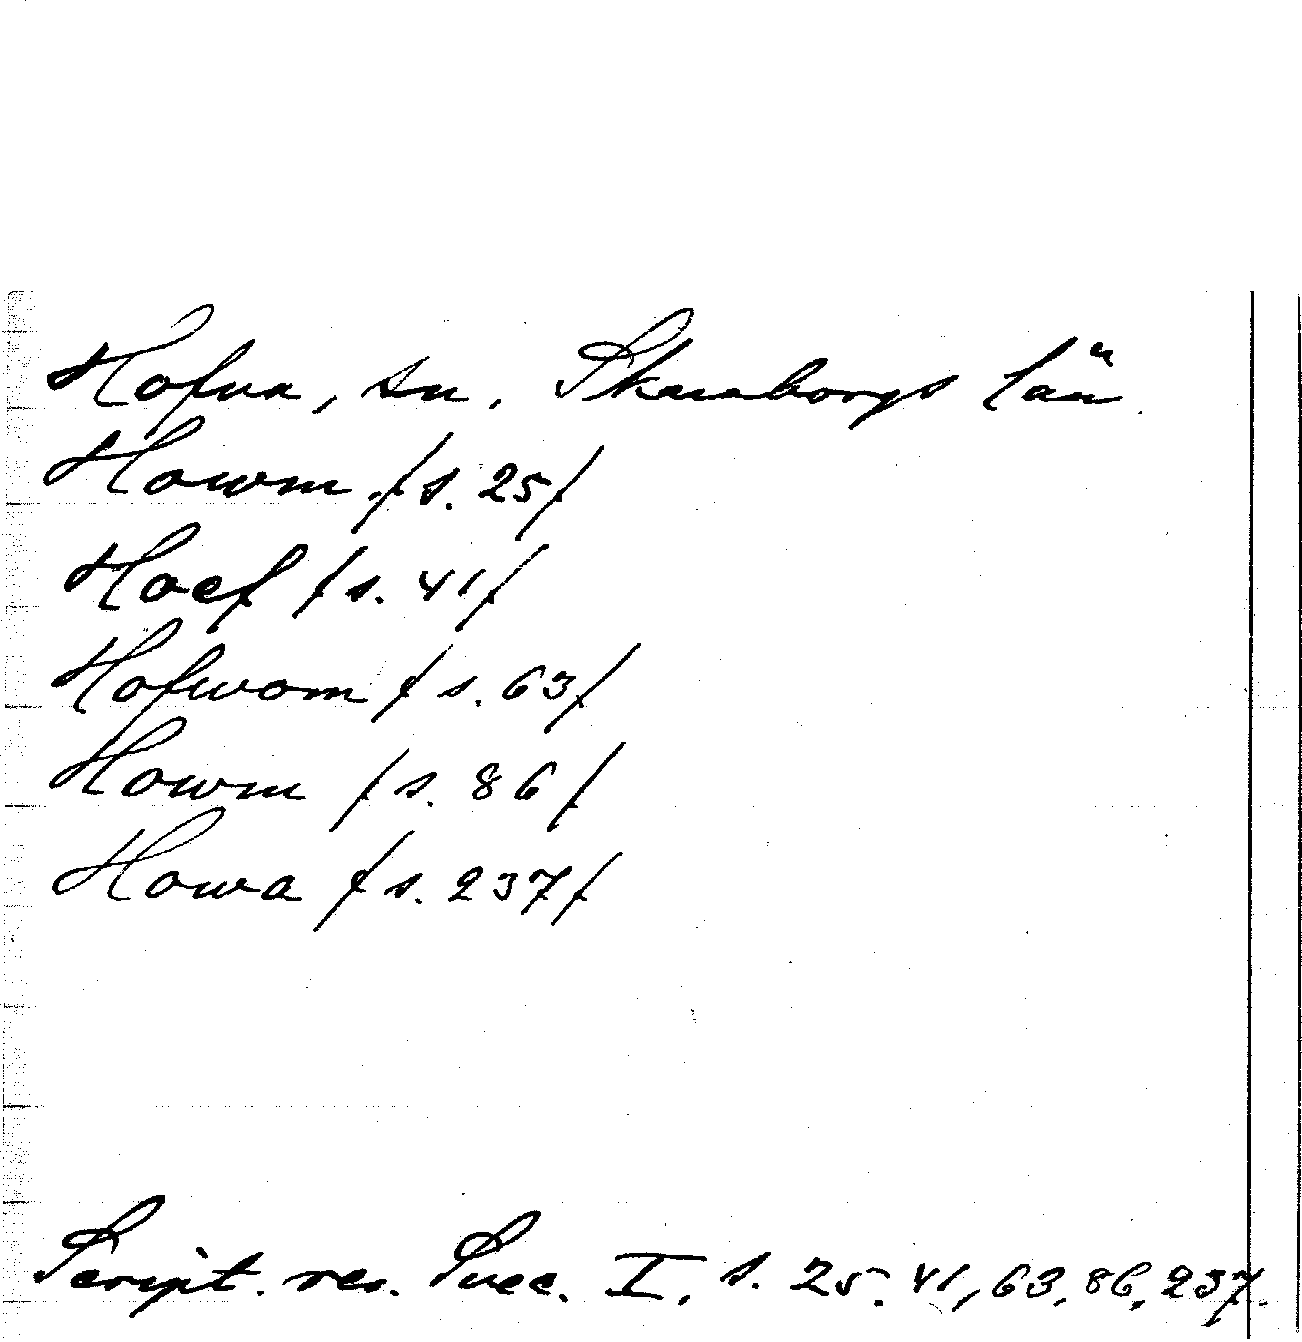 Hofva, sn. Skaraborgs län
Howm /s. 25/
Hoef /s. 41/
Hofwom /s. 63/
Howm /s. 86/
Howa /s. 237/
Script. rer. Suec. I, s. 25. 41, 63, 86, 237.